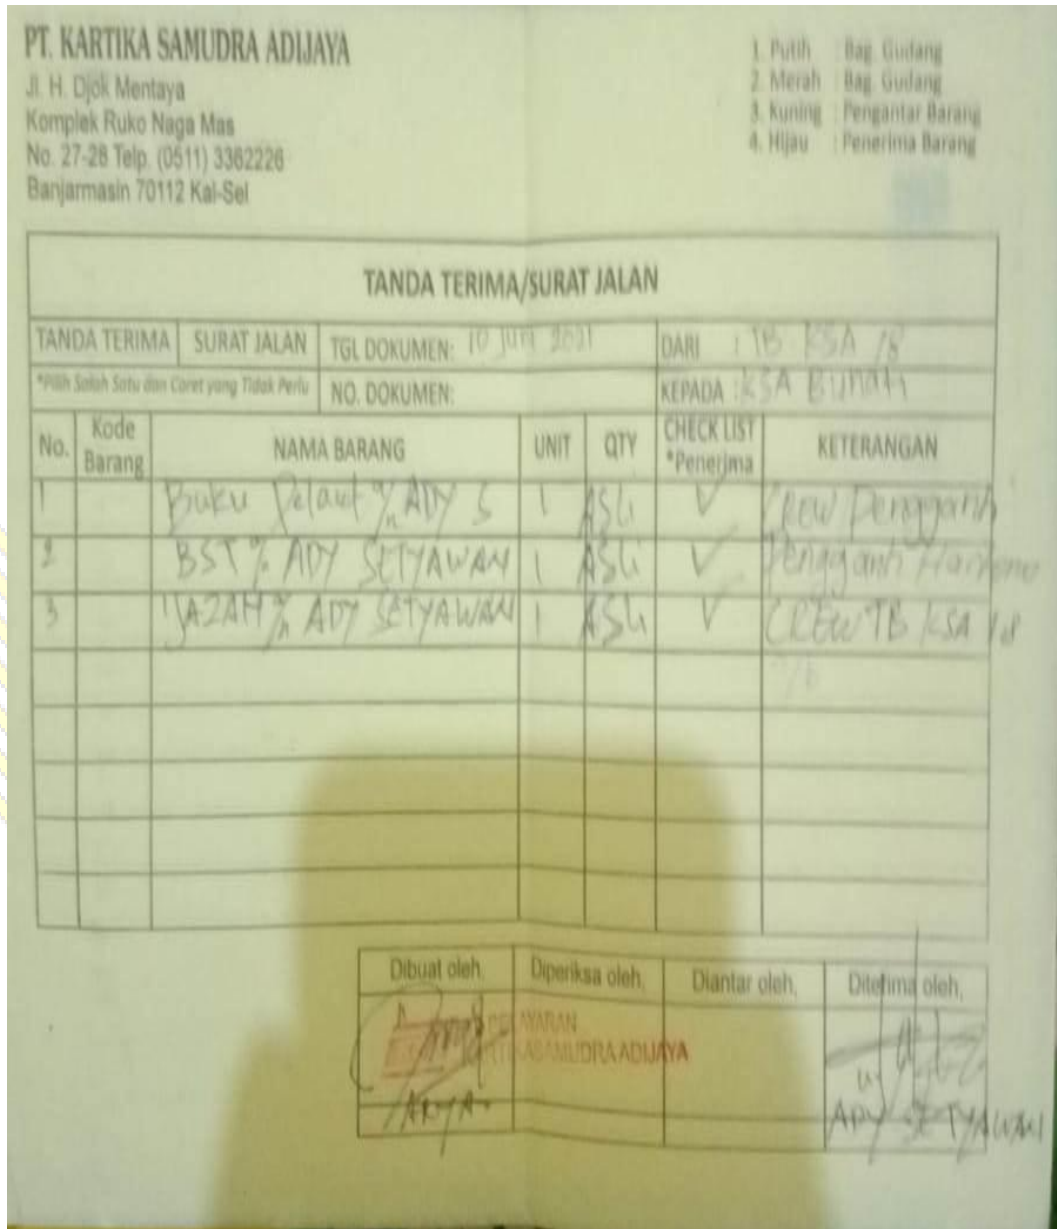 PT. KARTIKA SAMUDRA ADIJAYA
Jl. H. Djok Mentaya
Komplek Ruko Naga Mas
No. 27-28 Telp. (0511) 3362226
Banjarmasin 70112 Kal-Sel
1. Putih : Bag. Gudang
2. Merah : Bag. Gudang
3. Kuning : Pengantar Barang
4. Hijau : Penerima Barang
TANDA TERIMA/SURAT JALAN
TANDA TERIMA SURAT JALAN TGL DOKUMEN: 10 Juni 2021 DARI : TB KSA 18
*Pilih Salah Satu dan Coret yang Tidak Perlu NO. DOKUMEN: KEPADA : KSA Bunati
No. Kode Barang NAMA BARANG UNIT QTY CHECK LIST *Penerima KETERANGAN
1 Buku Pelaut %n ADY S 1 ASLi V Crew Pengganti
2 BST % ADY SETYAWAN 1 ASLi V Pengganti Hartono
3 IJAZAH %n ADY SETYAWAN 1 ASLi V CREW TB KSA 18
Dibuat oleh, Diperiksa oleh, Diantar oleh, Diterima oleh,
PELAYARAN
KARTIKA SAMUDRA ADIJAYA
ARYA
ADY SETYAWAN